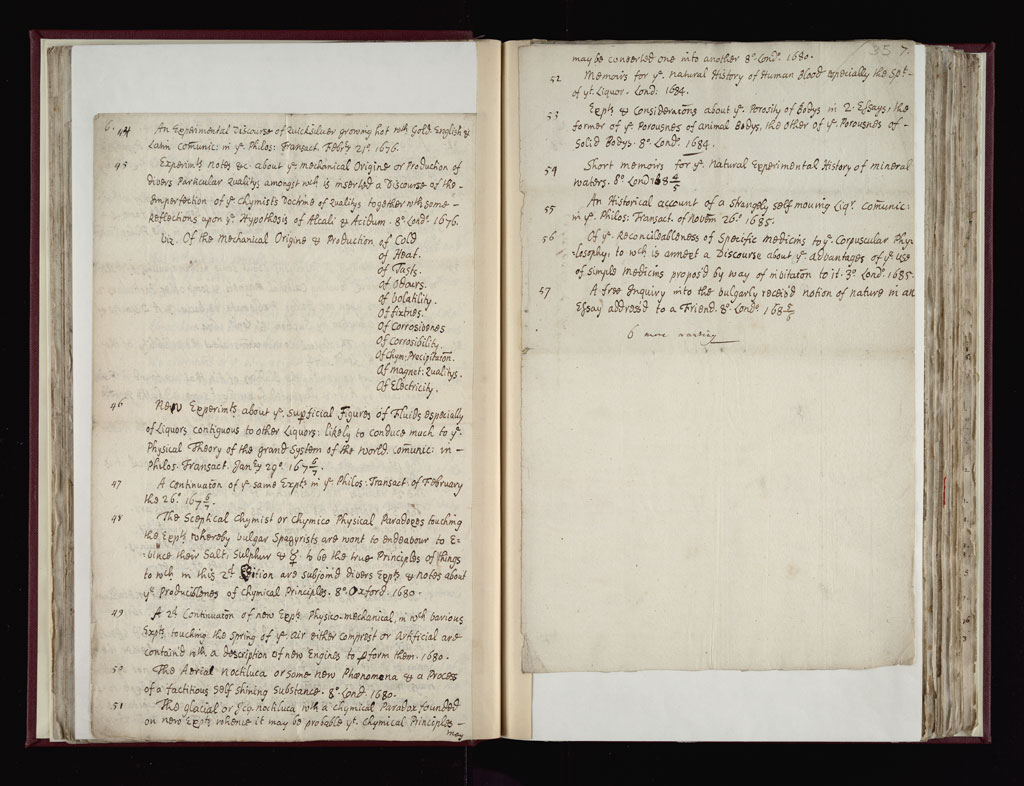 6. 44 An Experimental Discourse of Quicksilver growing hot wth Gold English &
Latin Comunic: in ye. Philos: Transact. Febry 21o. 1676.
45 Experimts notes &c. about ye. Mechanical Origine or Production of
divers Particular Qualitys amongst wch is inserted a Discourse of the -
Imperfection of ye Chymists Doctrine of Qualitys together wth some -
Reflections upon ye. Hypothesis of Alcali & Acidum. 8o. Londo. 1676.
viz. Of the Mechanical Origine & Production of Cold
of Heat.
of Tasts.
of Odours.
of Volatility.
Of fixtnes.
Of Corrosivenes
Of Corrosibility.
Of Chym: Precipitation.
Of magnet: Qualitys.
Of Electricity.
46 New Experimts about ye. superficial Figures of Fluids especially
of Liquors contiguous to other Liquors: likely to conduce much to ye.
Physical Theory of the grand System of the world. Comunic: in -
Philos. Transact. Janry 29o. 167 6/7.
47 A Continuation of ye. same Expts in ye. Philos: Transact: of February
the 26o. 167 6/7.
48 The Sceptical Chymist or Chymico Physical Paradoxes touching
the Expts whereby vulgar Spagyrists are wont to endeavour to E-
-vince their Salt, Sulphur & ☿ to be the true Principles of things
to wch in this 2d. Edition are subjoin'd divers Expts & notes about
ye. Produciblenes of Chymical Principles. 8o. Oxford. 1680.
49 A 2d. Continuation of new Expts Physico-mechanical, in wch various
Expts. touching the Spring of ye. air either comprest or Artificial are
contain'd wth a description of new Engines to perform them. 1680.
50 The Aerial Noctiluca or some new Phænomena & a Process
of a factitious Self Shining Substance. 8o. Lond. 1680.
51 The glacial or Icy noctiluca wth a Chymical Paradox founded
on new Expts whence it may be probable yt. Chymical Principles -
may
35 7.
may be converted one into another 8o. Londo. 1680.
52 Memoirs for ye. Natural History of Human Blood especially the Spt. -
of yt. Liquor. Lond: 1684.
53 Expts & Considerations about ye. Porosity of Bodys in 2. Essays, the
former of ye. Porousnes of animal Bodys, the other of ye. Porousnes of -
Solid Bodys. 8o. Lond. 1684.
54 Short memoirs for ye. Natural Experimental History of mineral
waters. 8o. Lond: 168 4/5
55 An Historical account of a strangely self moving Liqr. Comunic:
in ye. Philos: Transact. of Novem 26o. 1685.
56 Of ye. Reconcileableness of Specific medicins to ye. Corpuscular Phy-
-losophy, to wch is annext a Discourse about ye. advantages of ye use
of simple medicins propos'd by way of invitation to it. 8o. Lond. 1685.
57 A free Enquiry into the vulgarly receiv'd notion of nature in an
Essay address'd to a Friend. 8o. Londo. 168 5/6
6 more wanting